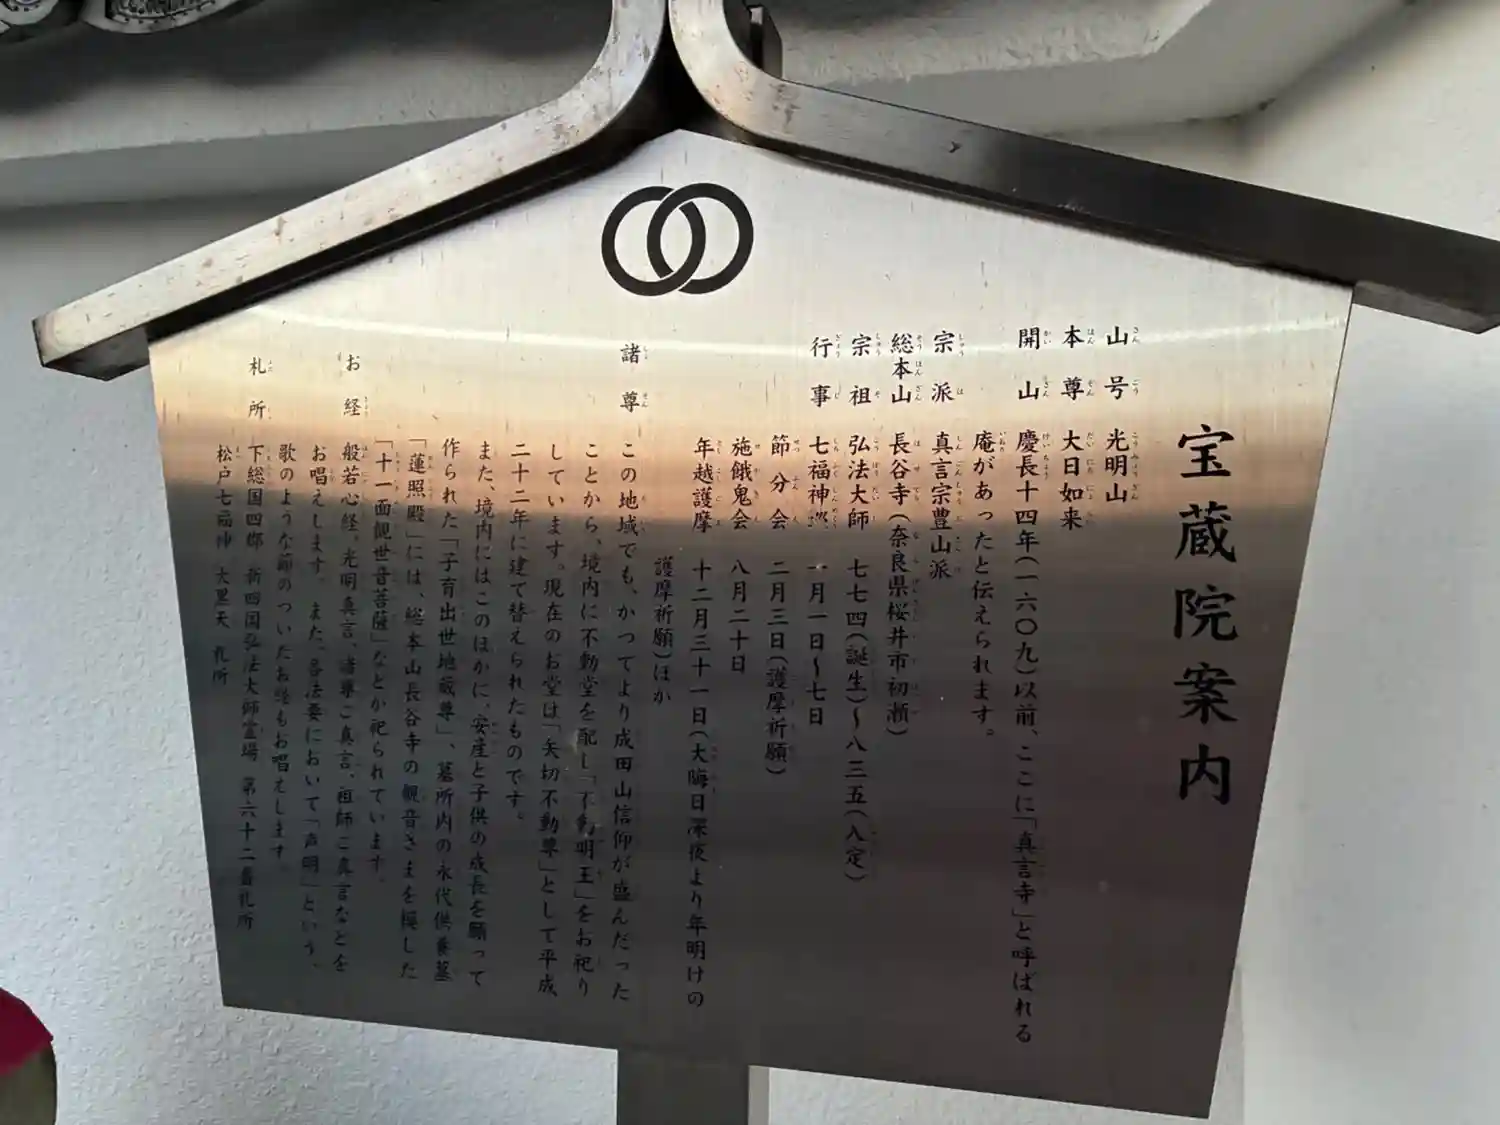 宝蔵院案内
山号 光明山
本尊 大日如来
開山 慶長十四年(一六〇九)以前、ここに「真言寺」と呼ばれる
庵があったと伝えられます。
宗派 真言宗豊山派
総本山 長谷寺(奈良県桜井市初瀬)
宗祖 弘法大師 七七四(誕生)〜八三五(入定)
行事 七福神 一月一日〜七日
節分会 二月三日(護摩祈願)
施餓鬼会 八月二十日
年越護摩 十二月三十一日(大晦日深夜より年明けの
護摩祈願)ほか
諸尊 この地域でも、かつてより成田山信仰が盛んだった
ことから、境内に不動堂を配し「不動明王」をお祀り
しています。現在のお堂は「矢切不動尊」として平成
二十二年に建て替えられたものです。
また、境内にはこのほかに、安産と子供の成長を願って
作られた「子育出世地蔵尊」、墓所内の永代供養墓
「蓮照殿」には、総本山長谷寺の観音さまを模した
「十一面観世音菩薩」などが祀られています。
お経 般若心経、光明真言、諸尊ご真言、祖師ご真言などを
お唱えします。また、各法要において「声明」という、
歌のような節のついたお経もお唱えします。
札所 下総国四郡 新四国弘法大師霊場 第六十二番札所
松戸七福神 大黒天 札所